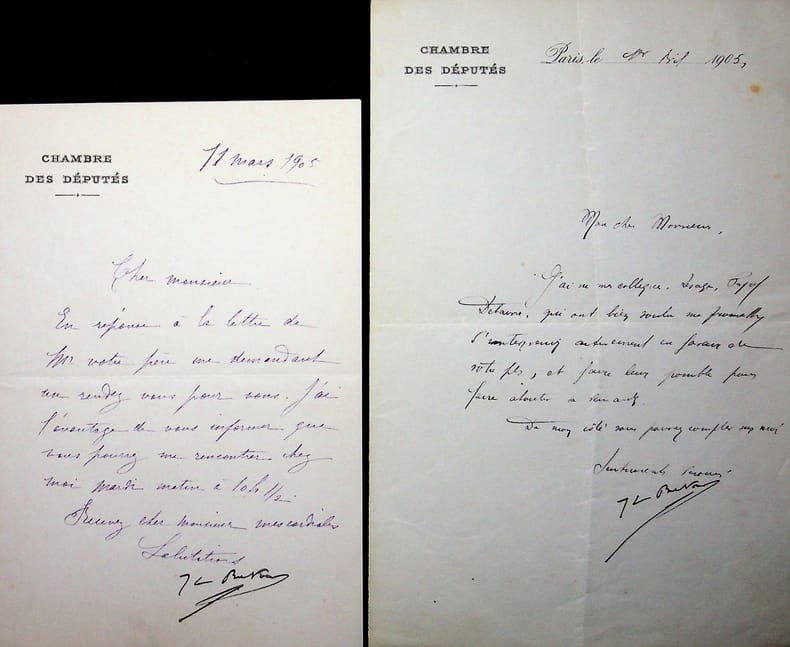 CHAMBRE
DES DÉPUTÉS
11 mars 1905
Cher monsieur
En réponse à la lettre de
Mr votre père me demandant
un rendez vous pour vous. J'ai
l'avantage de vous informer que
vous pourrez me rencontrer chez
moi mardi matin à 10h 1/2.
Recevez cher monsieur mes cordiales
Salutations
CHAMBRE
DES DÉPUTÉS
Paris, le 1er Avril 1905,
Mon cher Monsieur,
J'ai vu mes collègues
qui ont bien voulu me promettre
d'intervenir activement en faveur de
votre fils, et faire leur possible pour
faire aboutir
De mon côté vous pouvez compter sur moi
Sentiments dévoués